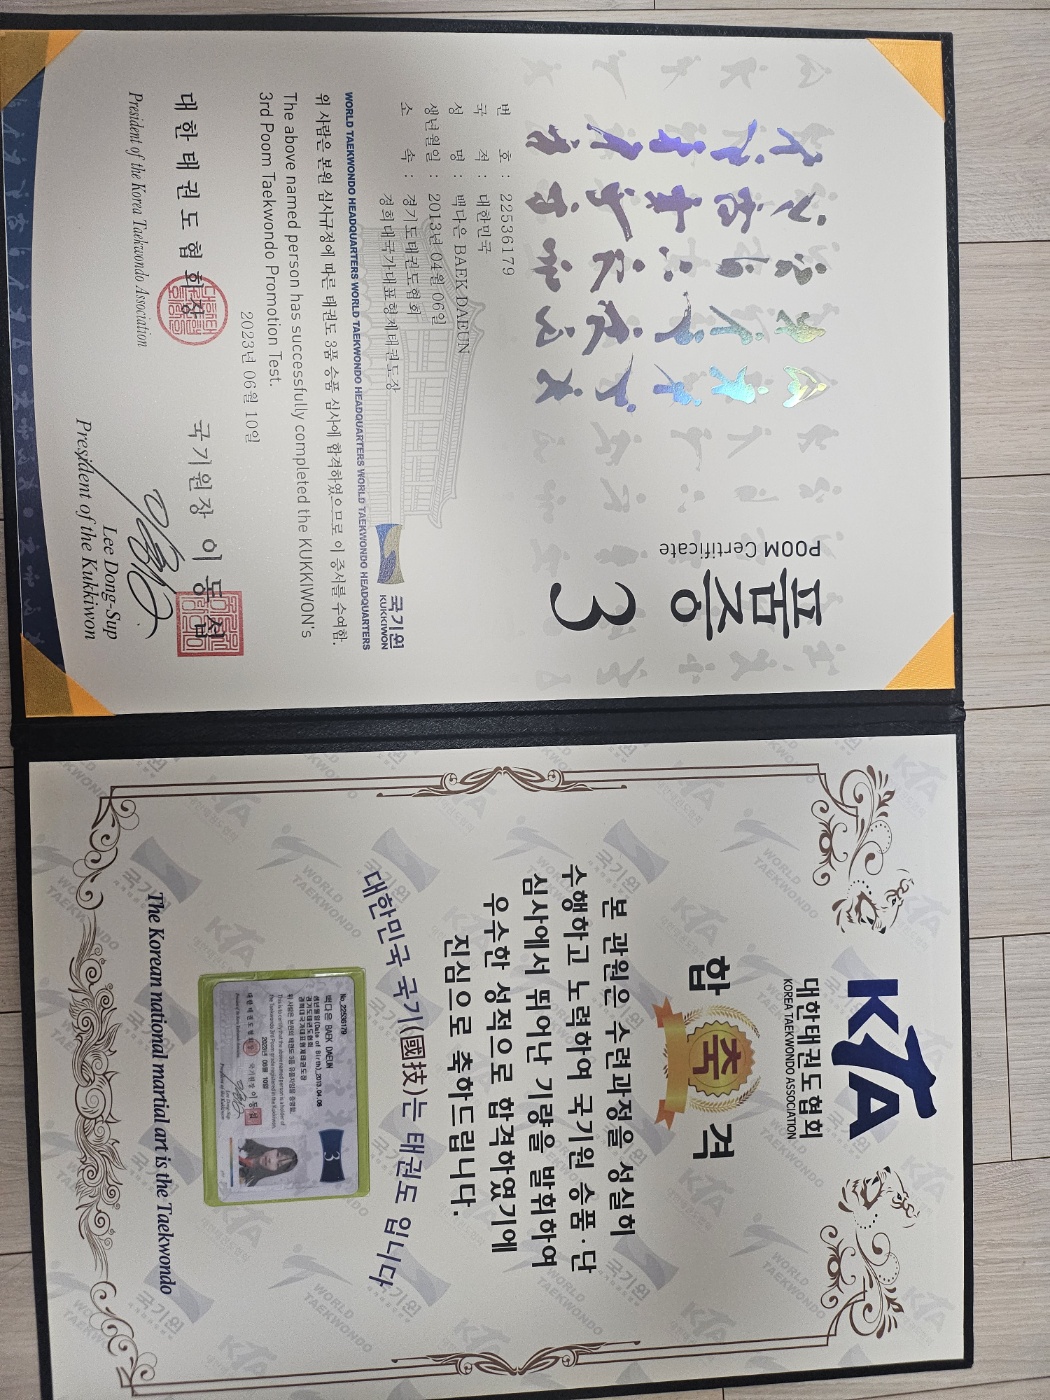 품증
POOM Certificate
3
번 호 : 22536179
국 적 : 대한민국
성 명 : 백다은 BAEK DAEUN
생년월일 : 2013년 04월 06일
소 속 : 경기도태권도협회
경희대국가대표항제태권도장
국기원
KUKKIWON
WORLD TAEKWONDO HEADQUARTERS WORLD TAEKWONDO HEADQUARTERS WORLD TAEKWONDO HEADQUARTERS WORLD TAEKWONDO HEADQUARTERS
위 사람은 본원 심사규정에 따른 태권도 3품 승품 심사에 합격하였으므로 이 증서를 수여함.
The above named person has successfully completed the KUKKIWON's
3rd Poom Taekwondo Promotion Test.
2023년 06월 10일
대한태권도협회장
President of the Korea Taekwondo Association
국기원장 이동섭
Lee Dong-Sup
President of the Kukkiwon
KTA
대한태권도협회
KOREA TAEKWONDO ASSOCIATION
합 축 격
본 관원은 수련과정을 성실히
수행하고 노력하여 국기원 승품·단
심사에서 뛰어난 기량을 발휘하여
우수한 성적으로 합격하였기에
진심으로 축하드립니다.
대한민국 국기(國技)는 태권도 입니다
No. 22536179
3
백다은 BAEK DAEUN
생년월일(Date of Birth) 2013.04.06
경기도태권도협회
경희대국가대표항제태권도장
2023년 06월 10일
The Korean national martial art is the Taekwondo
국기원
WORLD TAEKWONDO
KTA